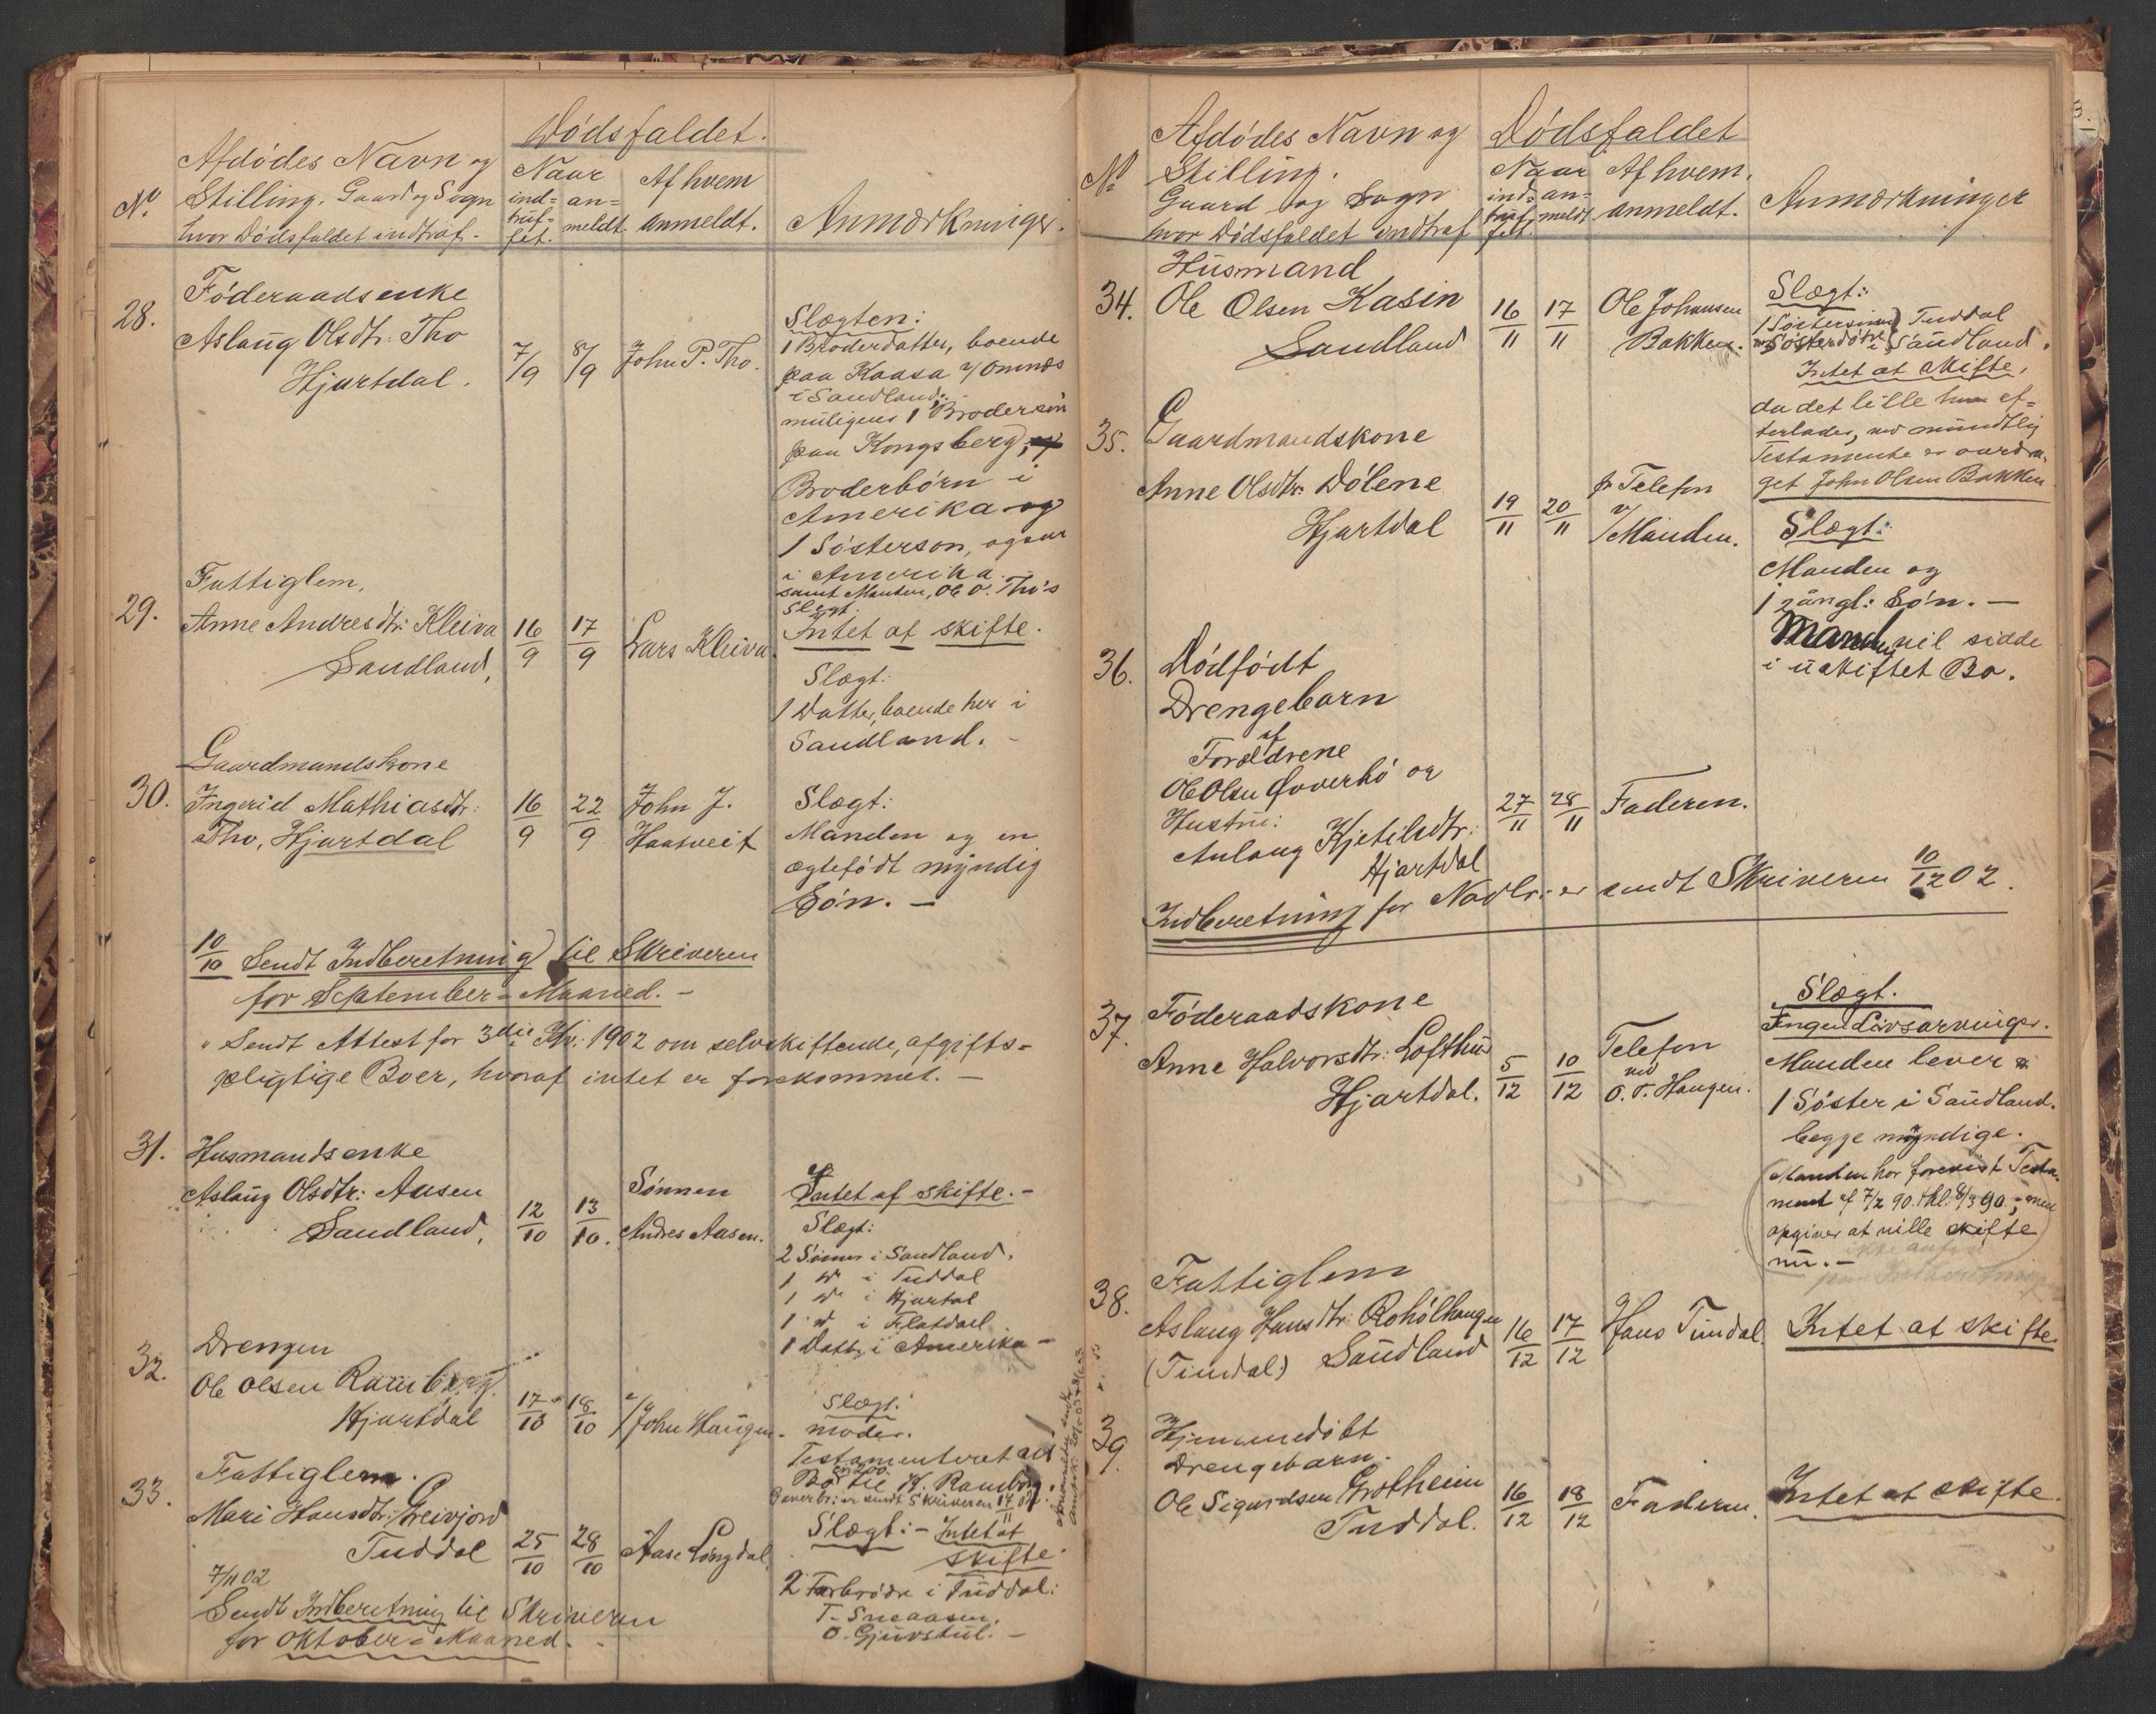 Dødsfaldet.
Afdødes Navn og
Stilling. Gaard og Sogn
hvor Dødsfaldet indtraf.
No.
Naar
ind= an=
truf= meldt.
fet.
Af hvem
anmeldt.
Anmærkninger.
28.
Føderaadsenke
Aslaug Olsdtr: Tho
Hjartdal.
7/9 8/9
John P. Tho.
Slægten:
1 Broderdatter, boende
paa Kaasa i Omnæs
i Saudland;
muligens 1 Brodersøn
paa Kongsberg;
Broderbørn i
Amerika og
1 Søsterson, ogsaa
i Amerika
samt Manden, Ole O. Tho's
Slægt.
29.
Fattiglem.
Anne Andresdtr: Kleiva
Saudland,
16/9 17/9
Lars Kleiva
Intet at skifte.
Slægt:
1 Datter, boende her i
Saudland. -
30.
Gaardmandskone
Ingerid Mathiasdtr:
Tho, Hjartdal
16/9 22/9
John J.
Haatveit
Slægt:
Manden og en
ægtefødt myndig
Søn. -
10/10 Sendt Indberetning til Skriveren
for September=Maaned. -
" Sendt Attest for 3die Kv: 1902 om selvskiftende, afgifts=
pligtige Boer, hvoraf intet er forekommet. -
31.
Husmandsenke
Aslaug Olsdtr: Aasen
Saudland,
12/10 13/10.
Sønnen
Andres Aasen.
Intet at skifte. -
Slægt:
2 Sønner i Saudland.
1 D i Tuddal
1 D i Hjartdal
1 D i Flatdal
1 Datter i Amerika -
32.
Drengen
Ole Olsen Ramberg.
Hjartdal
17/10 18/10
v/John Haugen.
Slægt:
moder.
Testamenteret alt
Bo til K. Ramberg.
33.
Fattiglem.
Mari Hansdtr: Greivjord
Tuddal
25/10 28/10
Aase Longdal
Slægt: - Intet at
skifte.
2 Farbrødre i Tuddal:
T. Sneaasen.
O. Gjuvstul. -
7/11 02
Sendt Indberetning til Skriveren
for Oktober=Maaned.
Afdødes Navn og
Stilling.
Gaard og Sogn
hvor Dødsfaldet indtraf
No
Dødsfaldet
Naar
ind= an=
truf= meldt
fet.
Af hvem.
anmeldt.
Anmærkninger
34.
Husmand
Ole Olsen Kasin
Saudland
16/11 17/11
Ole Johansen
Bakken.
Slægt:
1 Søstersøn i Tuddal
Søsterdøtre i Saudland.
Intet at skifte,
da det lille han ef=
terlader, ved mundtlig
Testamente er overdra=
get John Olsen Bakken
35.
Gaardmandskone
Anne Olsdtr: Dølene
Hjartdal
19/11 20/11
pr Telefon
v/Manden.
Slægt:
Manden og
1 Søn. -
Manden vil sidde
i uskiftet Bo.
36.
Dødfødt
Drengebarn
af
Forældrene
Ole Olsen Øverbø og
Hustru:
Aslaug Kjetilsdtr:
Hjartdal
27/11 28/11
Faderen.
Indberetning for Novbr: er sendt Skriveren 10/12 02.
37.
Føderaadskone
Anne Halvorsdtr: Lofthus
Hjartdal.
5/12 10/12
Telefon
ved
O. T. Haugen.
Slægt.
Ingen Livsarvinger.
Manden lever &
1 Søster i Saudland.
begge myndige.
(Manden har forevist Testa=
ment af 7/2 90. thl. 8/3 90.; men
opgiver at ville skifte
nu. -
38.
Fattiglem
Aslaug Hansdtr: Roholthaugen
(Tindal) Saudland
16/12 17/12
Hans Tindal
Intet at skifte.
39.
Hjemmedøbt
Drengebarn.
Ole Sigurdsen Grotheim
Tuddal.
16/12 18/12
Faderen.
Intet at skifte.